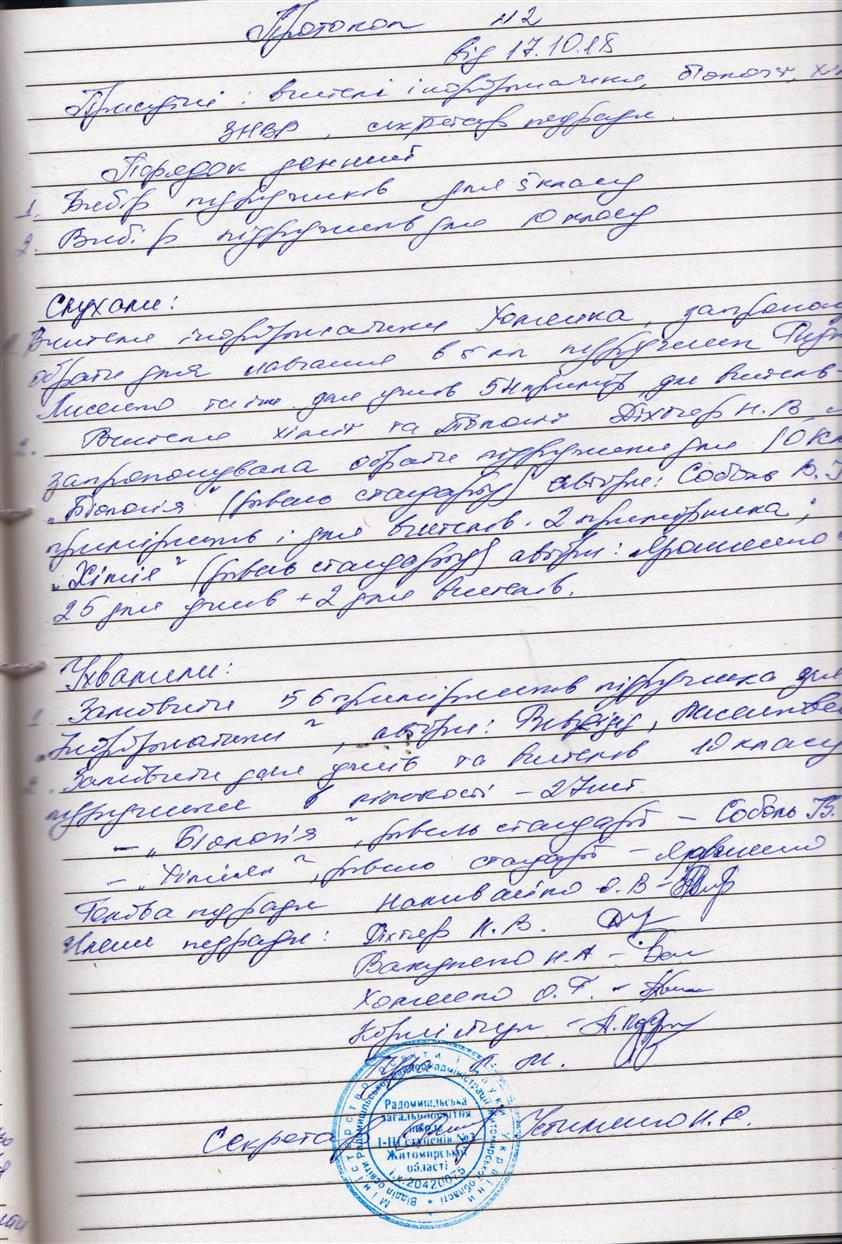 Протокол №2
від 17.10.18
Присутні: вчителі інформатики, біології, хі
ЗНВР, секретар педради.
Порядок денний
1. Вибір підручників для 5 класу
2. Вибір підручників для 10 класу
Слухали:
Вчителя інформатики Хоменка, запропону
обрати для навчання в 5 кл підручник
Лисенко та ін. для учнів 54 примір, для вчителів -
2. Вчителя хімії та біології Діхтяр Н.В
запропонувала обрати підручники для 10 кл
„Біологія" (рівень стандарту) автори: Соболь В.І
примірників і для вчителів. 2 примірника;
„Хімія" (рівень стандарту) автори: Ярошенко
25 для учнів + 2 для вчителів.
Ухвалили:
1. Замовити 56 примірників підручника для
„Інформатики", автори: Ривкінд, Лисенко
2. Замовити для учнів та вчителів 10 класу
підручники в кількості - 27 шт.
- „Біологія", рівень стандарт - Соболь В.
- „Хімія", рівень стандарт - Ярошенко
Голова педради Наливайко О.В -
Члени педради: Діхтяр Н.В.
Вакуленко Н.А -
Хоменко О.Г. -
Секретар Устименко Н.С.
Міністерство освіти і науки України
Відділ освіти Радомишльської райдержадміністрації Житомирської області
Радомишльська
загальноосвітня
школа
І-ІІІ ступенів №3
Житомирської
області